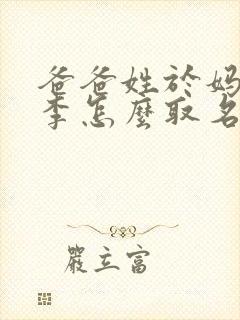 爸爸姓於妈
李怎麼取名
嚴立富